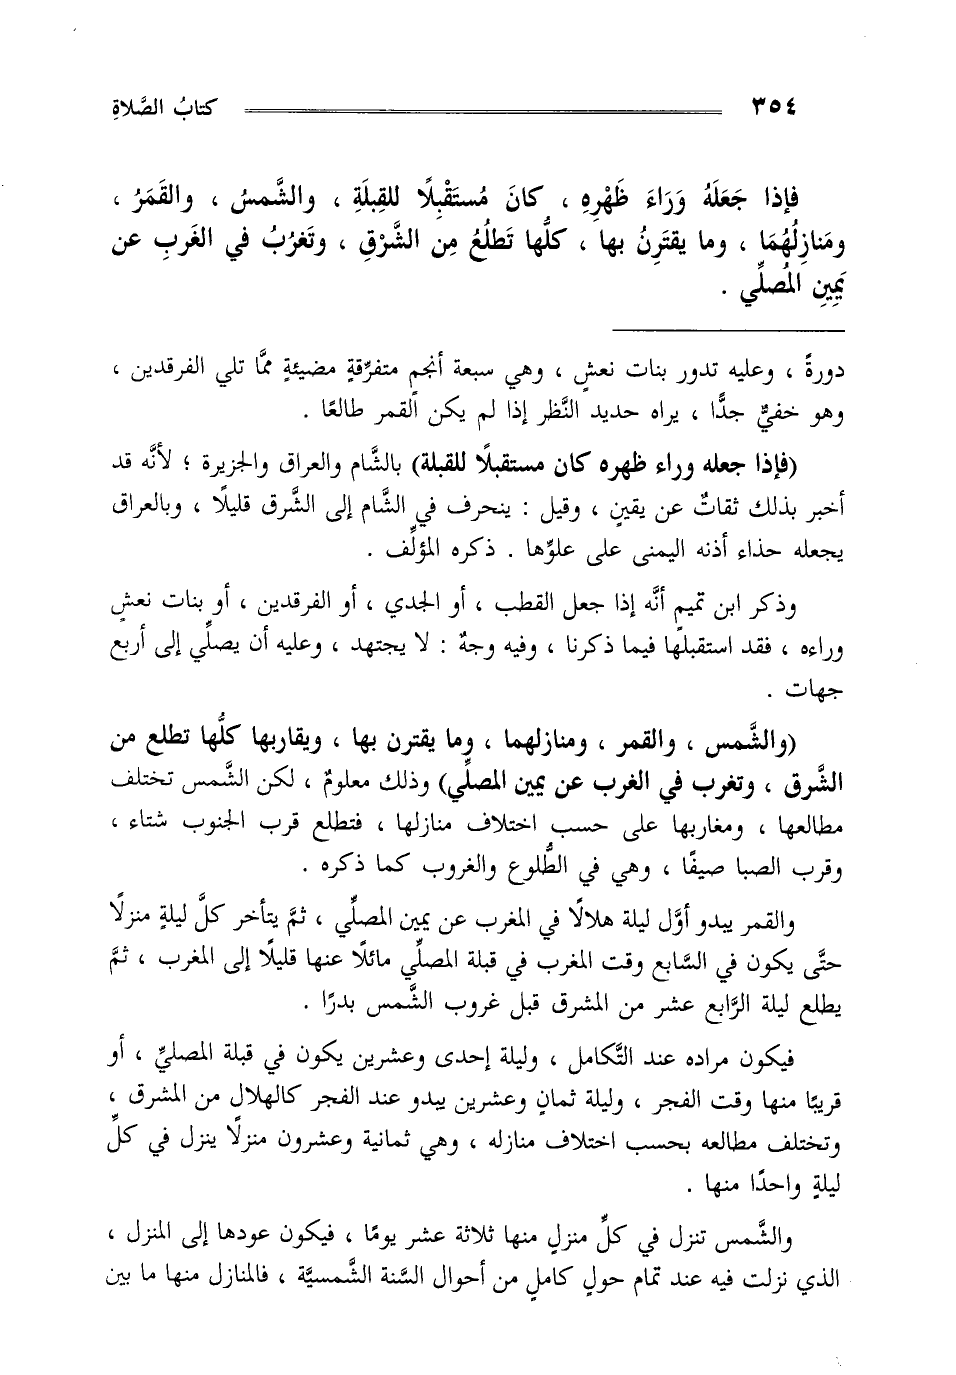 ٣٥٤ كتابُ الصَّلاةِ
فإذا جَعَلَهُ وَرَاءَ ظَهْرِهِ ، كانَ مُستَقْبِلًا للقِبلَةِ ، والشَّمسُ ، والقَمَرُ ،
ومَنازِلُهُمَا ، وما يقتَرِنُ بها ، كلُّها تَطلُعُ مِن الشَّرْقِ ، وتَغرُبُ في الغَربِ عن
يَمِينِ المُصلِّي .
دورةً ، وعليه تدور بنات نعشٍ ، وهي سبعة أنجمٍ متفرِّقةٍ مضيئةٍ ممَّا تلي الفرقدين ،
وهو خفيٌّ جدًّا ، يراه حديد النَّظر إذا لم يكن القمر طالعًا .
(فإذا جعله وراء ظهره كان مستقبلًا للقبلة) بالشَّام والعراق والجزيرة ؛ لأنَّه قد
أخبر بذلك ثقاتٌ عن يقينٍ ، وقيل : ينحرف في الشَّام إلى الشَّرق قليلًا ، وبالعراق
يجعله حذاء أذنه اليمنى على علوِّها . ذكره المؤلِّف .
وذكر ابن تميمٍ أنَّه إذا جعل القطب ، أو الجدي ، أو الفرقدين ، أو بنات نعشٍ
وراءه ، فقد استقبلها فيما ذكرنا ، وفيه وجهٌ : لا يجتهد ، وعليه أن يصلِّي إلى أربع
جهات .
(والشَّمس ، والقمر ، ومنازلهما ، وما يقترن بها ، ويقاربها كلُّها تطلع من
الشَّرق ، وتغرب في الغرب عن يمين المصلِّي) وذلك معلومٌ ، لكن الشَّمس تختلف
مطالعها ، ومغاربها على حسب اختلاف منازلها ، فتطلع قرب الجنوب شتاء ،
وقرب الصبا صيفًا ، وهي في الطُّلوع والغروب كما ذكره .
والقمر يبدو أوَّل ليلة هلالًا في المغرب عن يمين المصلِّي ، ثمَّ يتأخر كلَّ ليلةٍ منزلًا
حتَّى يكون في السَّابع وقت المغرب في قبلة المصلِّي مائلًا عنها قليلًا إلى المغرب ، ثمَّ
يطلع ليلة الرَّابع عشر من المشرق قبل غروب الشَّمس بدرًا .
فيكون مراده عند التَّكامل ، وليلة إحدى وعشرين يكون في قبلة المصليِّ ، أو
قريبًا منها وقت الفجر ، وليلة ثمانٍ وعشرين يبدو عند الفجر كالهلال من المشرق ،
وتختلف مطالعه بحسب اختلاف منازله ، وهي ثمانية وعشرون منزلًا ينزل في كلِّ
ليلةٍ واحدًا منها .
والشَّمس تنزل في كلِّ منزلٍ منها ثلاثة عشر يومًا ، فيكون عودها إلى المنزل ،
الذي نزلت فيه عند تمام حولٍ كاملٍ من أحوال السَّنة الشَّمسيَّة ، فالمنازل منها ما بين